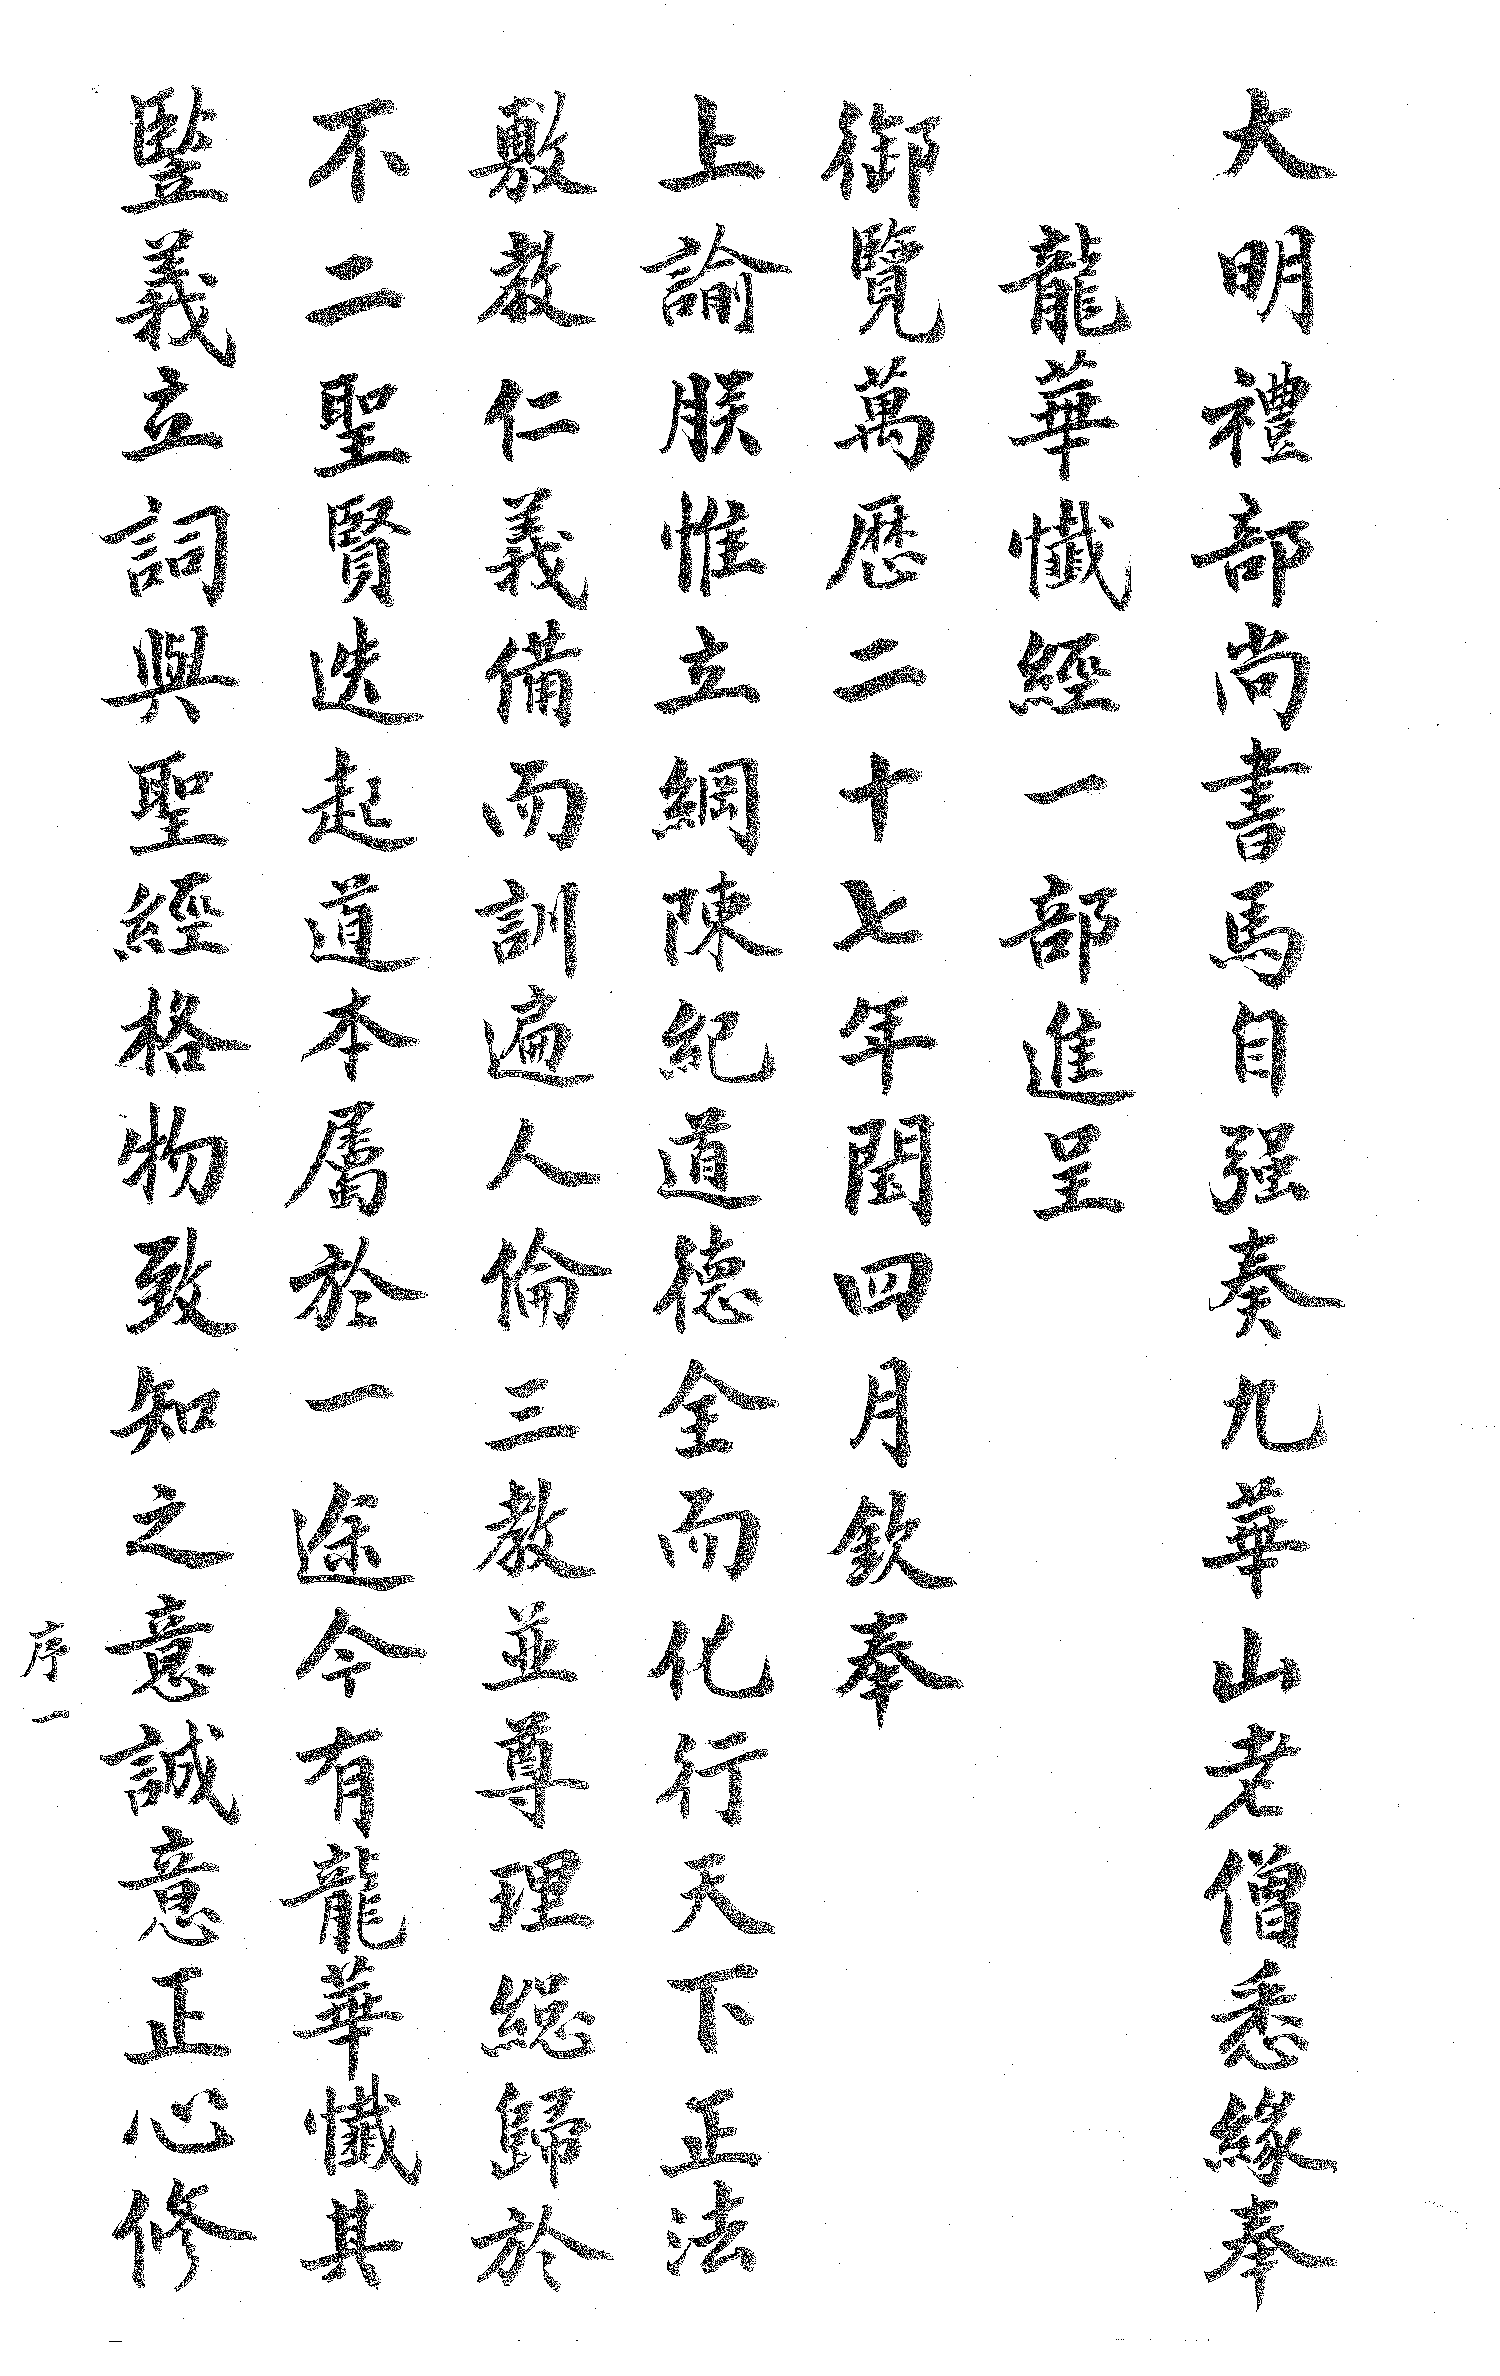 大明禮部尚書馬自强奏九華山老僧悉緣奉
龍華懺經一部進呈
御覽萬歴二十七年閏四月欽奉
上諭朕惟立綱陳紀道德全而化行天下正法
敷教仁義備而訓遍人倫三教並尊理総歸於
不二聖賢迭起道本屬於一途今有龍華懺其
豎義立詞與聖經格物致知之意誠意正心修
序一